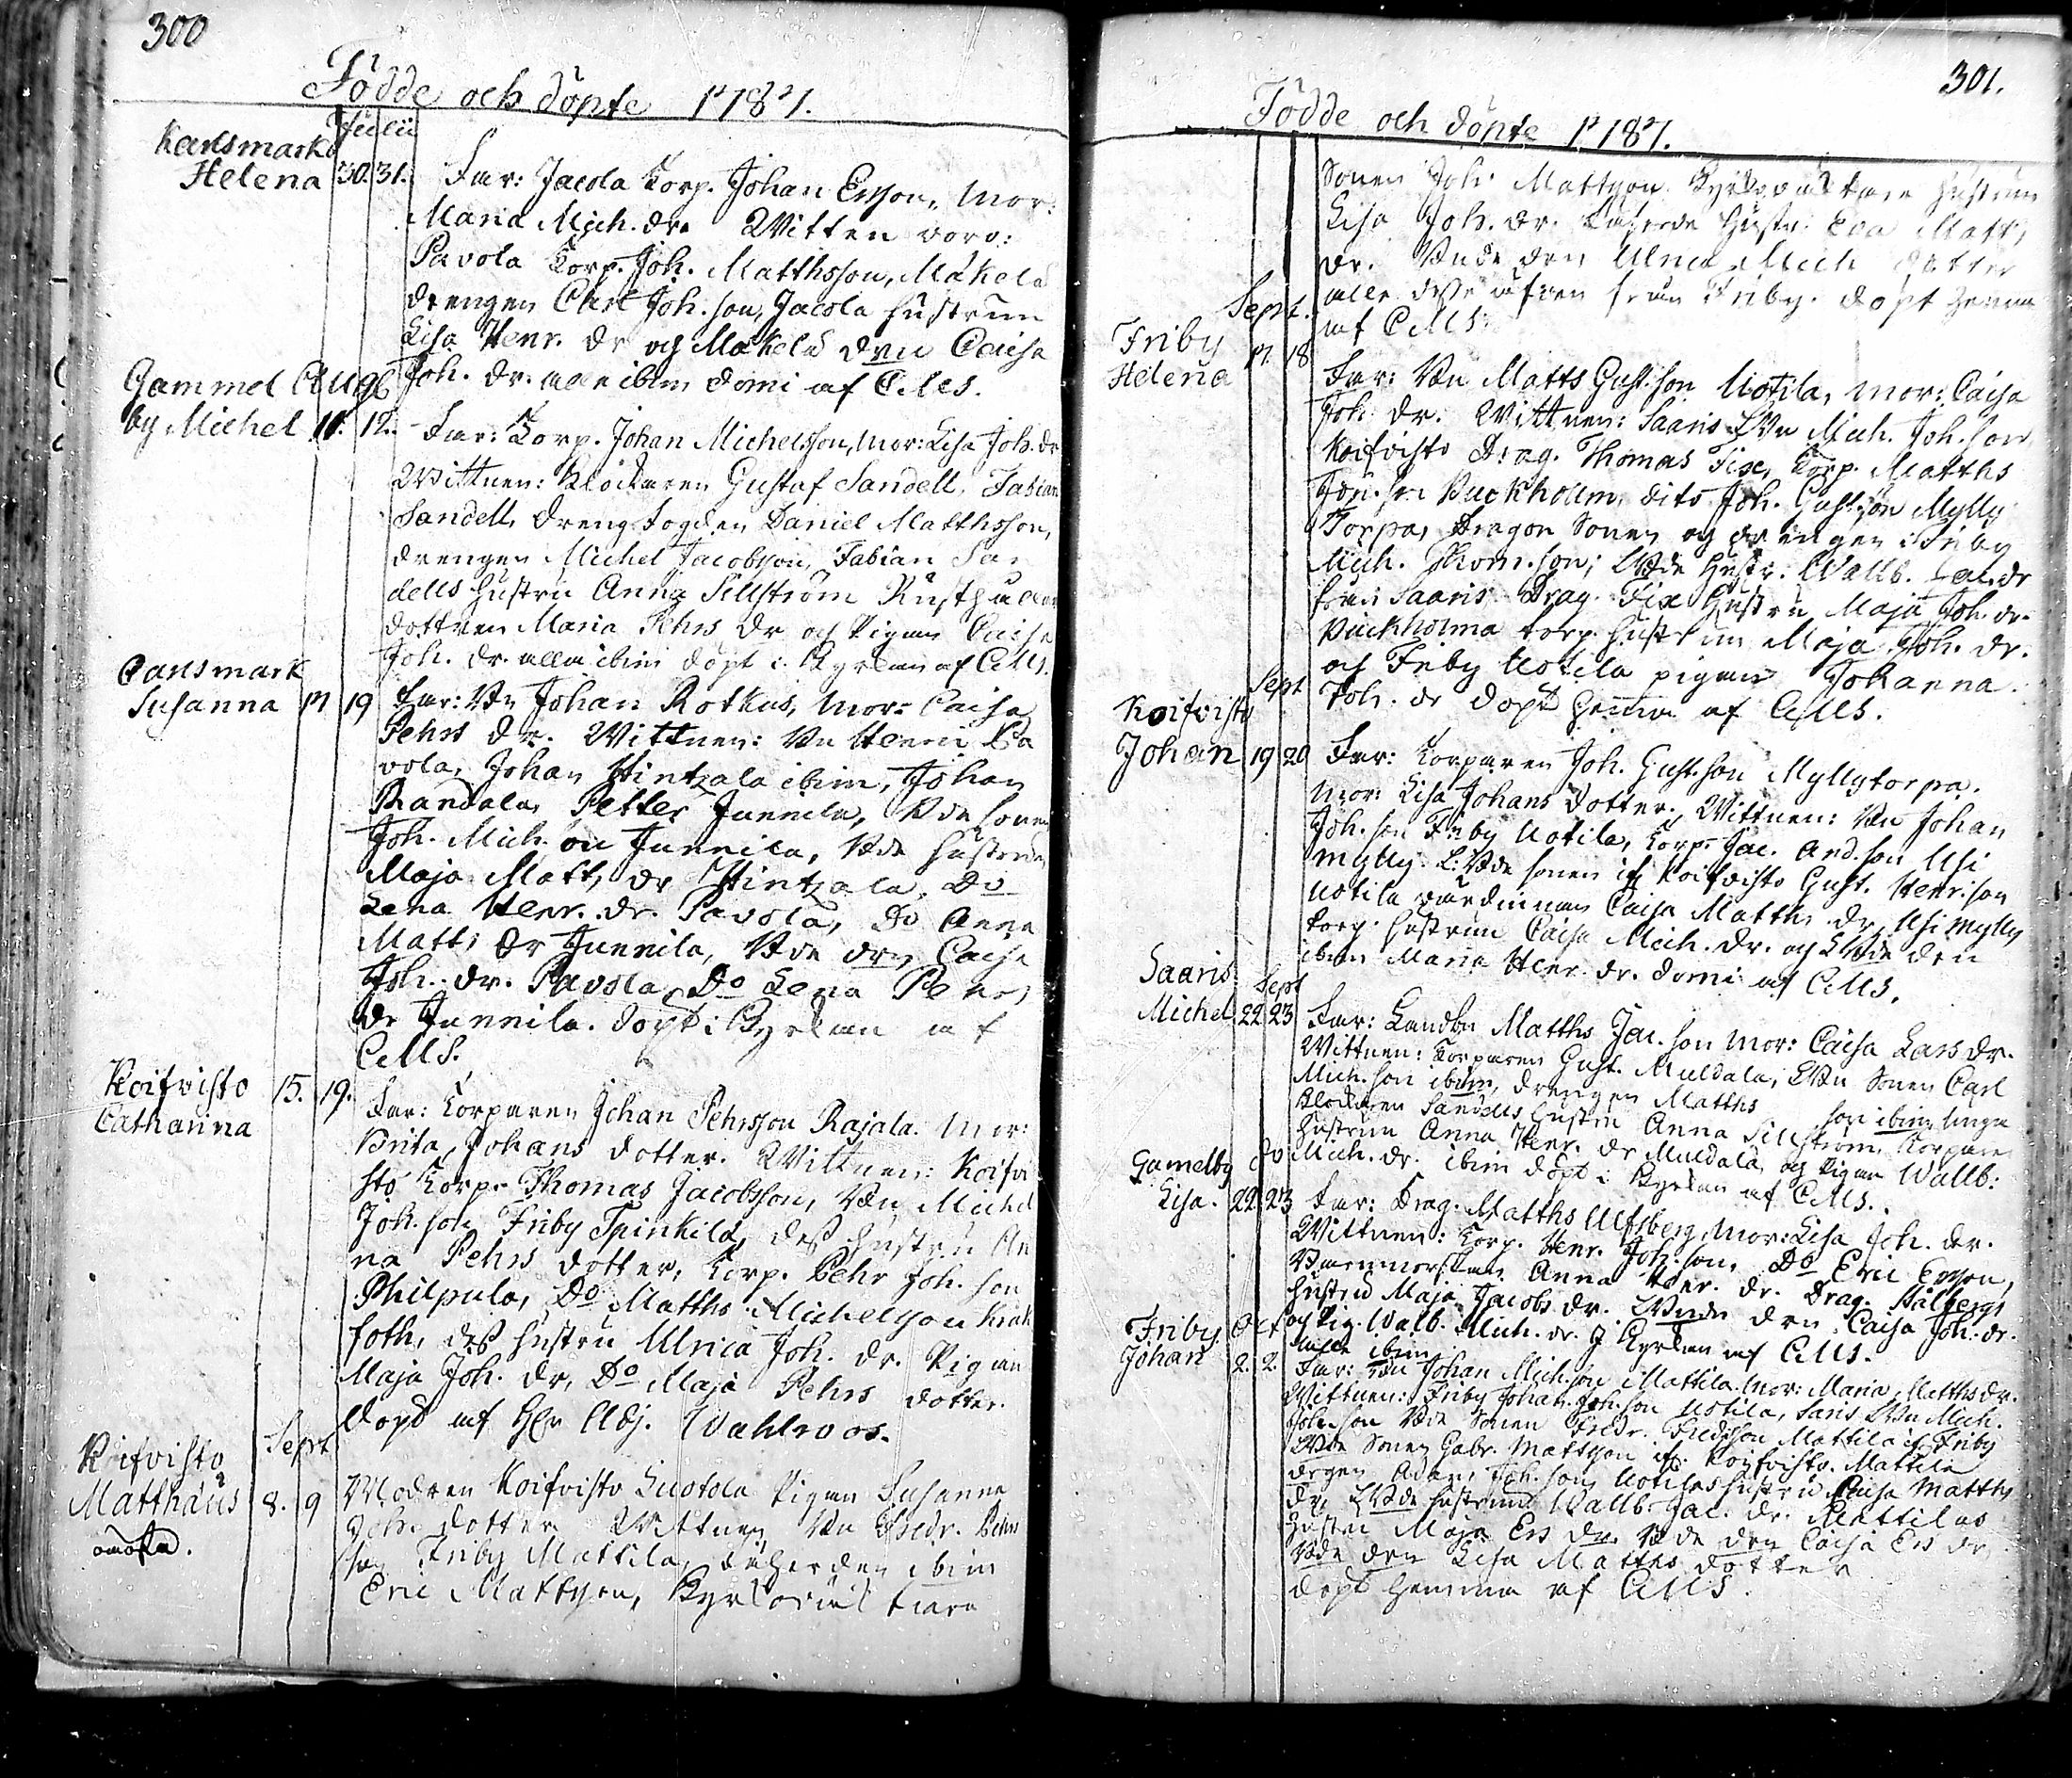 300
Födde och döpte 1787.
Julii
Karlsmark
Helena 30. 31. Far: Jacola Torp. Johan Ersson, Mor:
Maria Mich. dr. Witten voro:
Pavola Torp. Joh. Matthsson, Mäkelä
drengen Carl Joh. son, Jacola hustrun
Lisa Henr. dr och Mäkelä Caisa
Joh. dr. alle ibm domi af CMS.
Gammel Aug
by Michel 11. 12. Far: Torp. Johan Michelsson, Mor: Lisa Joh. dr
Wittnen: Klockaren Gustaf Sandell, Fabian
Sandell, Dreng Daniel Matthsson,
drengen Michel Jacobsson, Fabian San
dells hustru Anna Sillström
dottren Maria Pehrs dr och Pigan Caisa
Joh. dr. alla ibm döpt i Kyrkan af CMS.
Carlsmark
Susanna 17 19 Far: Bn Johan Rotkus, Mor: Caisa
Pehrs dr. Wittnen: Bn Henric Pa
vola, Johan Hintzala ibm, Johan
Randala, Petter Junnila, Bde sonen
Joh. Mich. son Junnila, Bde hustrun
Maja Matts dr Hintzala, Do
Lena Henr. dr. Pavola, Do Anna
Matts dr Junnila, Bde Caisa
Joh. dr. Pavola, Do Lena Pehrs
dr Junnila. döpt i Kyrkan af
CMS.
Koifvisto 15. 19. Far: Torparen Johan Pehrsson Rajala. Mor:
Catharina
Brita Johans dotter. Wittnen: Koifvi
sto Torp. Thomas Jacobsson, Bn Michel
Joh. son Friby Spinkilä, dess hustru An
na Pehrs dotter, Torp. Pehr Joh. son
Philpula, Do Matths Michelsson
foth, dess hustru Ulrica Joh. dr. Pigan
Maja Joh. dr, Do Maja Pehrs dotter.
döpt af Hr Adj. Wahlroos.
Koifvisto Sept
Matthäus 8. 9 Modren Koifvisto Luotola Pigan Susanna
oäkta.
Joh. dotter. Wittnen Bn Fredr. Pehrs
son Friby Mattila, ibm
Eric Mattsson,
301.
Födde och döpte 1787.
Sonen Joh. Mattsson hustrun
Lisa Joh. dr. hustr. Eva Matts
dr. Ulrica Mich dotter
alle Friby. döpt hemma
af CMS.
Sept.
Friby 17. 18
Helena
Far: Bn Matts Gust. son Uotila, Mor: Caisa
Joh. dr. Wittnen: Saaris Bn Mich. Joh. son
Koifvisto Drag. Thomas Fix, Torp. Matths
Joh. son Puckholm, dito Joh. Gust. son Mylly
Torpa, Dragon Sonen och drengen i Friby
Mich. Thom. son; hustr. Wallb. Jac. dr
från Saaris Drag. Fix hustru Maja Joh. dr.
Puckholma torp. hustrun Maja Joh. dr.
och Friby Uotila pigan Johanna
Joh. dr döpt hemma af CMS.
Sept
Koifvisto
Johan 19 20 Far: Torparen Joh. Gust. son Myllytorpa.
Mor: Lisa Johans dotter, Wittnen: Bn Johan
Joh. son Friby Uotila, Torp. Jac. And. son Usi
mylly. Bde sonen Koifvisto Gust. Henr. son
Uotila värdinnan Caisa Matths dr, Usi mylly
torp. hustrun Caisa Mich. dr. och
ibm Maria Henr. dr. domi af CMS.
Saaris Sept
Michel 22 23 Far: Landbn Matths Jac. son Mor: Caisa Lars dr.
Wittnen: Torparen Gust. Muldala, Sonen Carl
Mich. son ibm, drengen Matths son ibm
Klockaren Sandells hustru Anna Sillström, Torpare
hustrun Anna Henr. dr Muldala, och Pigan Wallb:
Mich. dr. ibm döpt i Kyrkan af CMS.
Gamelby do
Lisa. 22 23 Far: Drag. Matths Ulfsberg, Mor: Lisa Joh. dr.
Wittnen: Torp. Henr. Joh. son, Do Eric Ersson,
Barnmorskan Anna Henr. dr. Drag. Stålbergs
hustru Maja Jacobs dr. Caisa Joh. dr.
och Pig. Walb. Mich. dr. i Kyrkan af CMS.
alle ibm
Friby Oct
Johan 2. 2. Far: Bn Johan Mich. son Mattila. Mor: Maria Matths dr.
Wittnen: Friby Johan Joh. son Uotila, Saris Bn Mich.
Joh. son Bde Sonen Fredr. Fredsson Mattila Friby
Sonen Gabr. Mattsson Koifvisto. Mattila
drengen Adam Joh. son, Uotilas hustru Caisa Matths
dr, hustrun Wallb. Jac. dr. Mattilas
hustru Maja Ers dr. Bde Caisa Ers dr
Bde Lisa Matths dotter
döpt hemma af CMS.